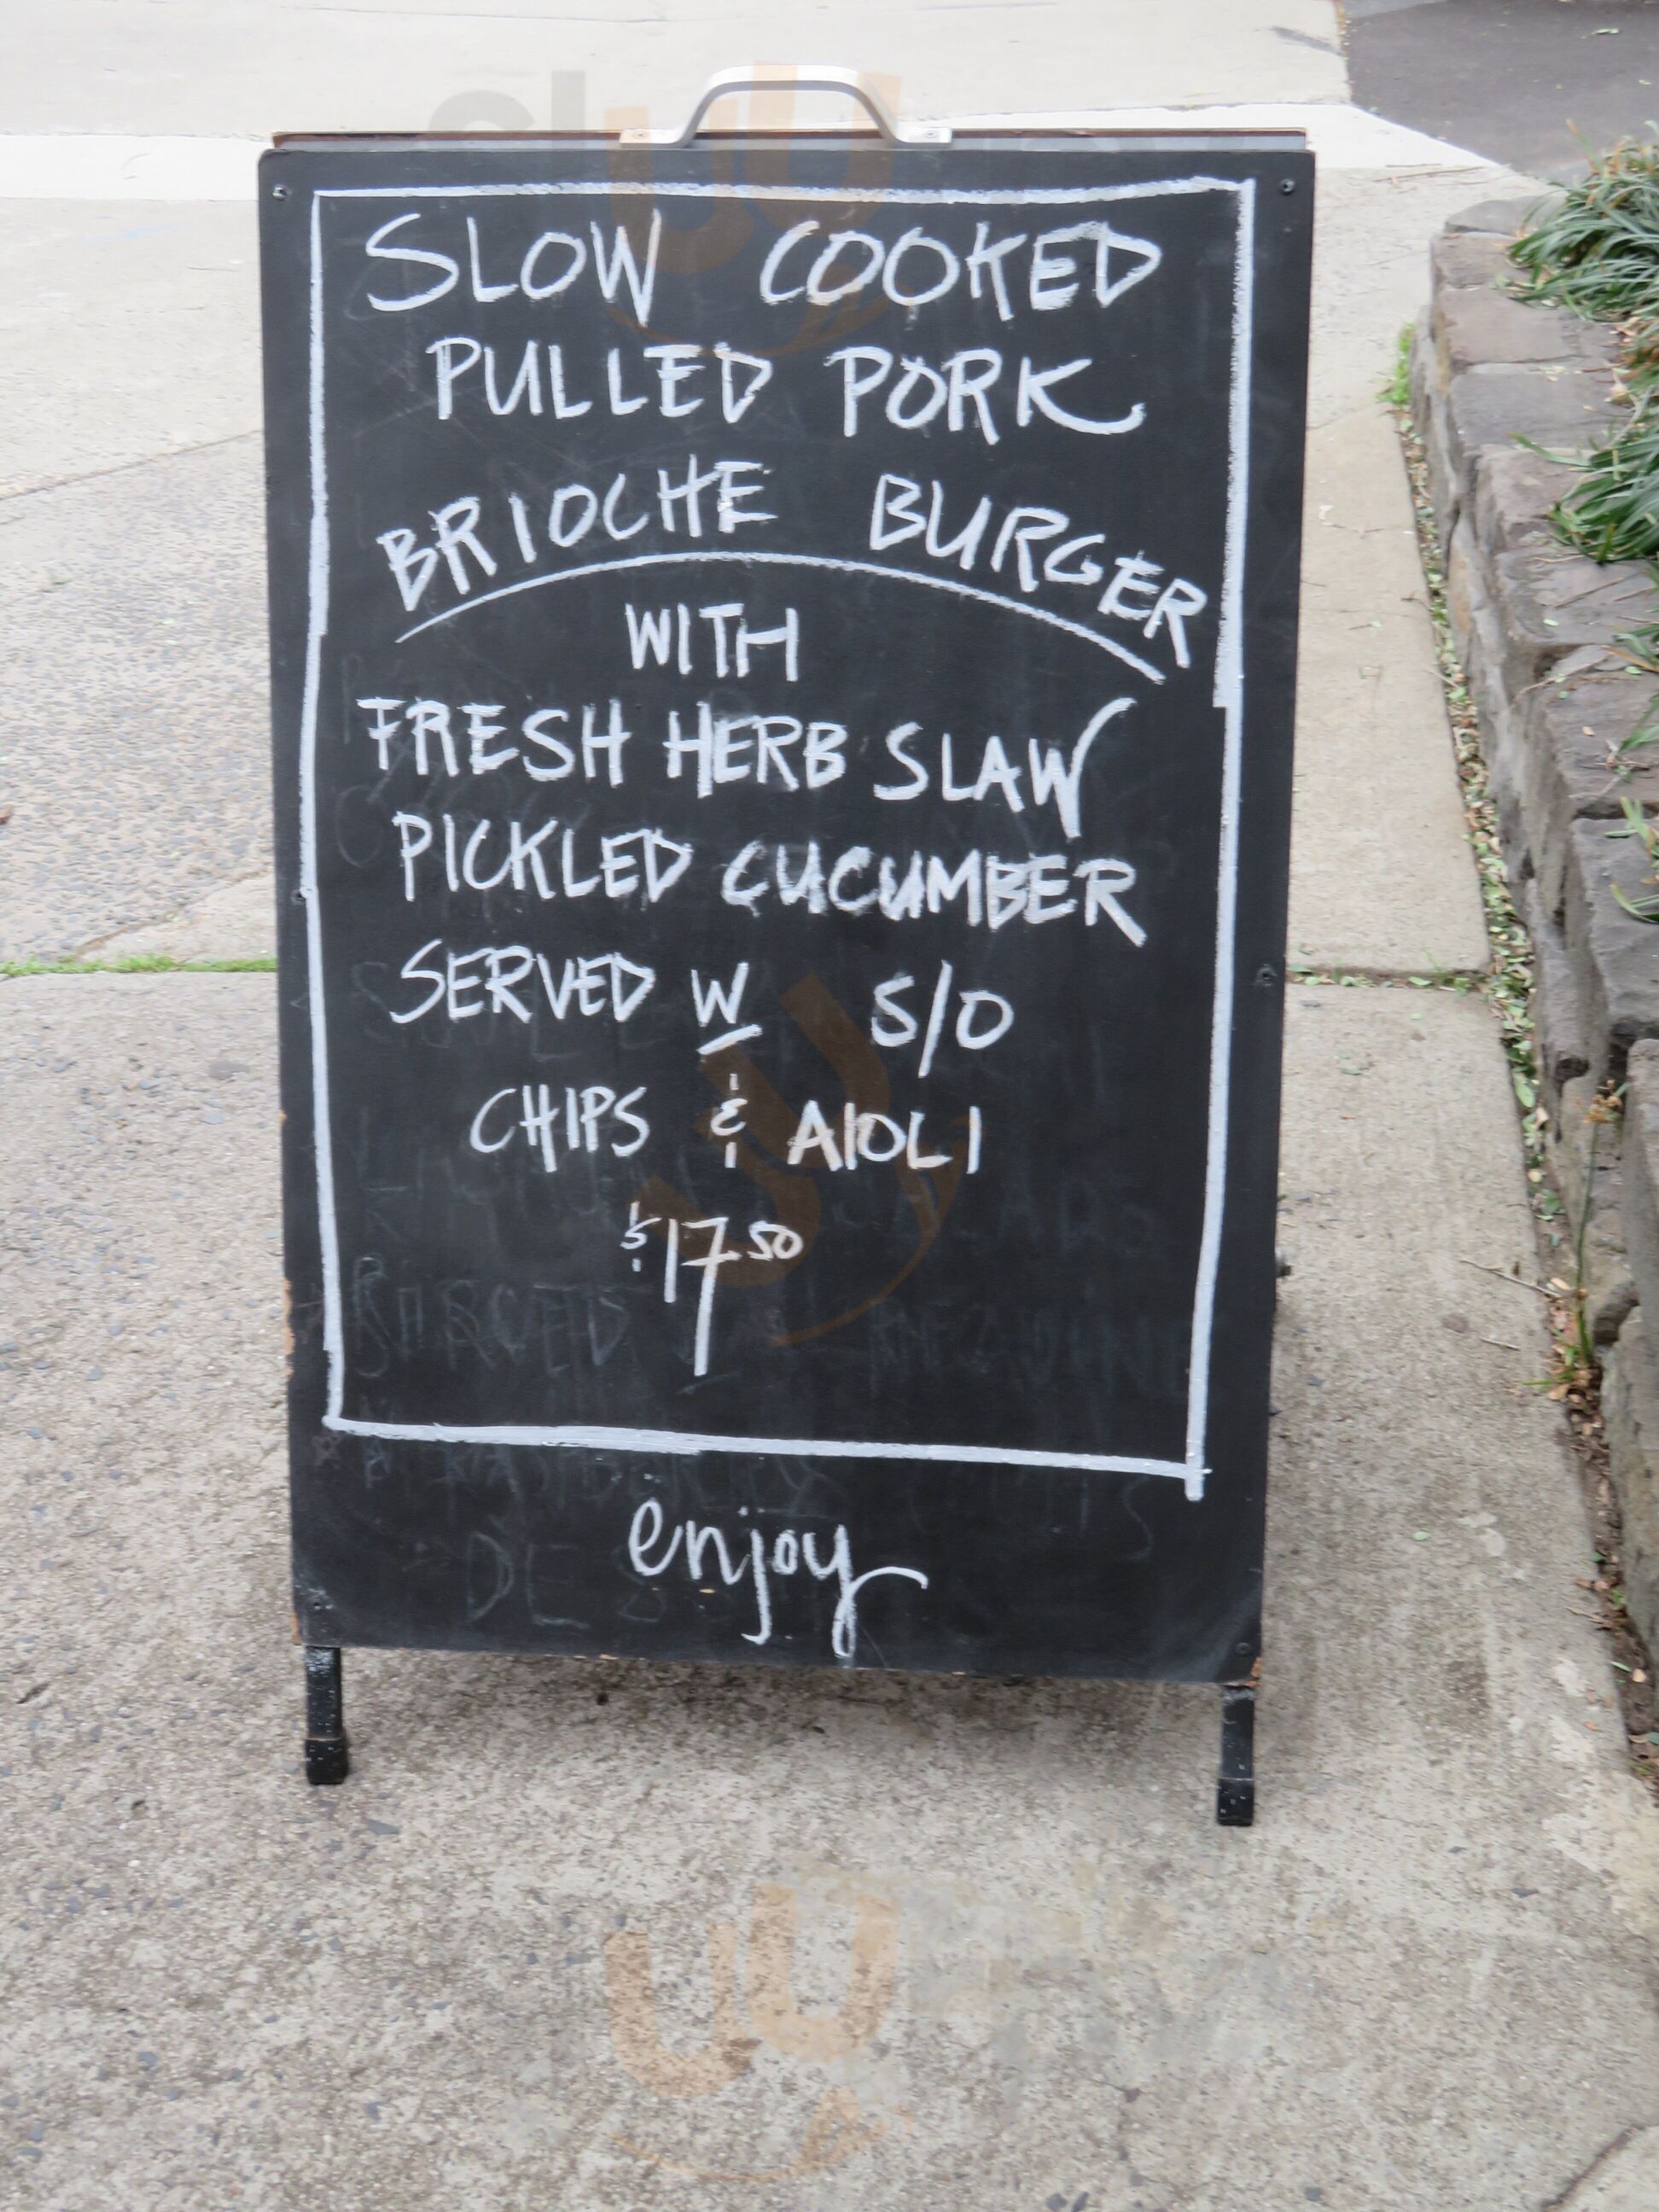 SLOW COOKED
PULLED PORK
BRIOCHE BURGER
WITH
FRESH HERB SLAW
PICKLED CUCUMBER
SERVED W S/O
CHIPS & AIOLI
$17 50
enjoy